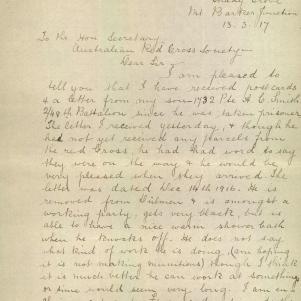 Shady Grove
Mt Barker Junction
13. 3. 17
To the Hon Secretary,
Australian Red Cross Society
Dear Sir,
I am pleased to
tell you that I have received postcards
& a letter from my son 1732 Pte H C Smith
2/48th Battalion since he was taken prisoner
The letter I received yesterday, & though he
had not yet received any Parcels from
the red Cross, he had had word to say
they were on the way & he would be
very pleased when they arrived. The
letter was dated Dec 14th 1916. He is
removed from Dülmen & is amongst a
working party, gets very black, but is
able to have a nice warm shower bath
when he knocks off. He does not say
what kind of work he is doing, (am hoping
it is not making munitions) though I think
it is much better he can work at something
or time would seem very long. I am